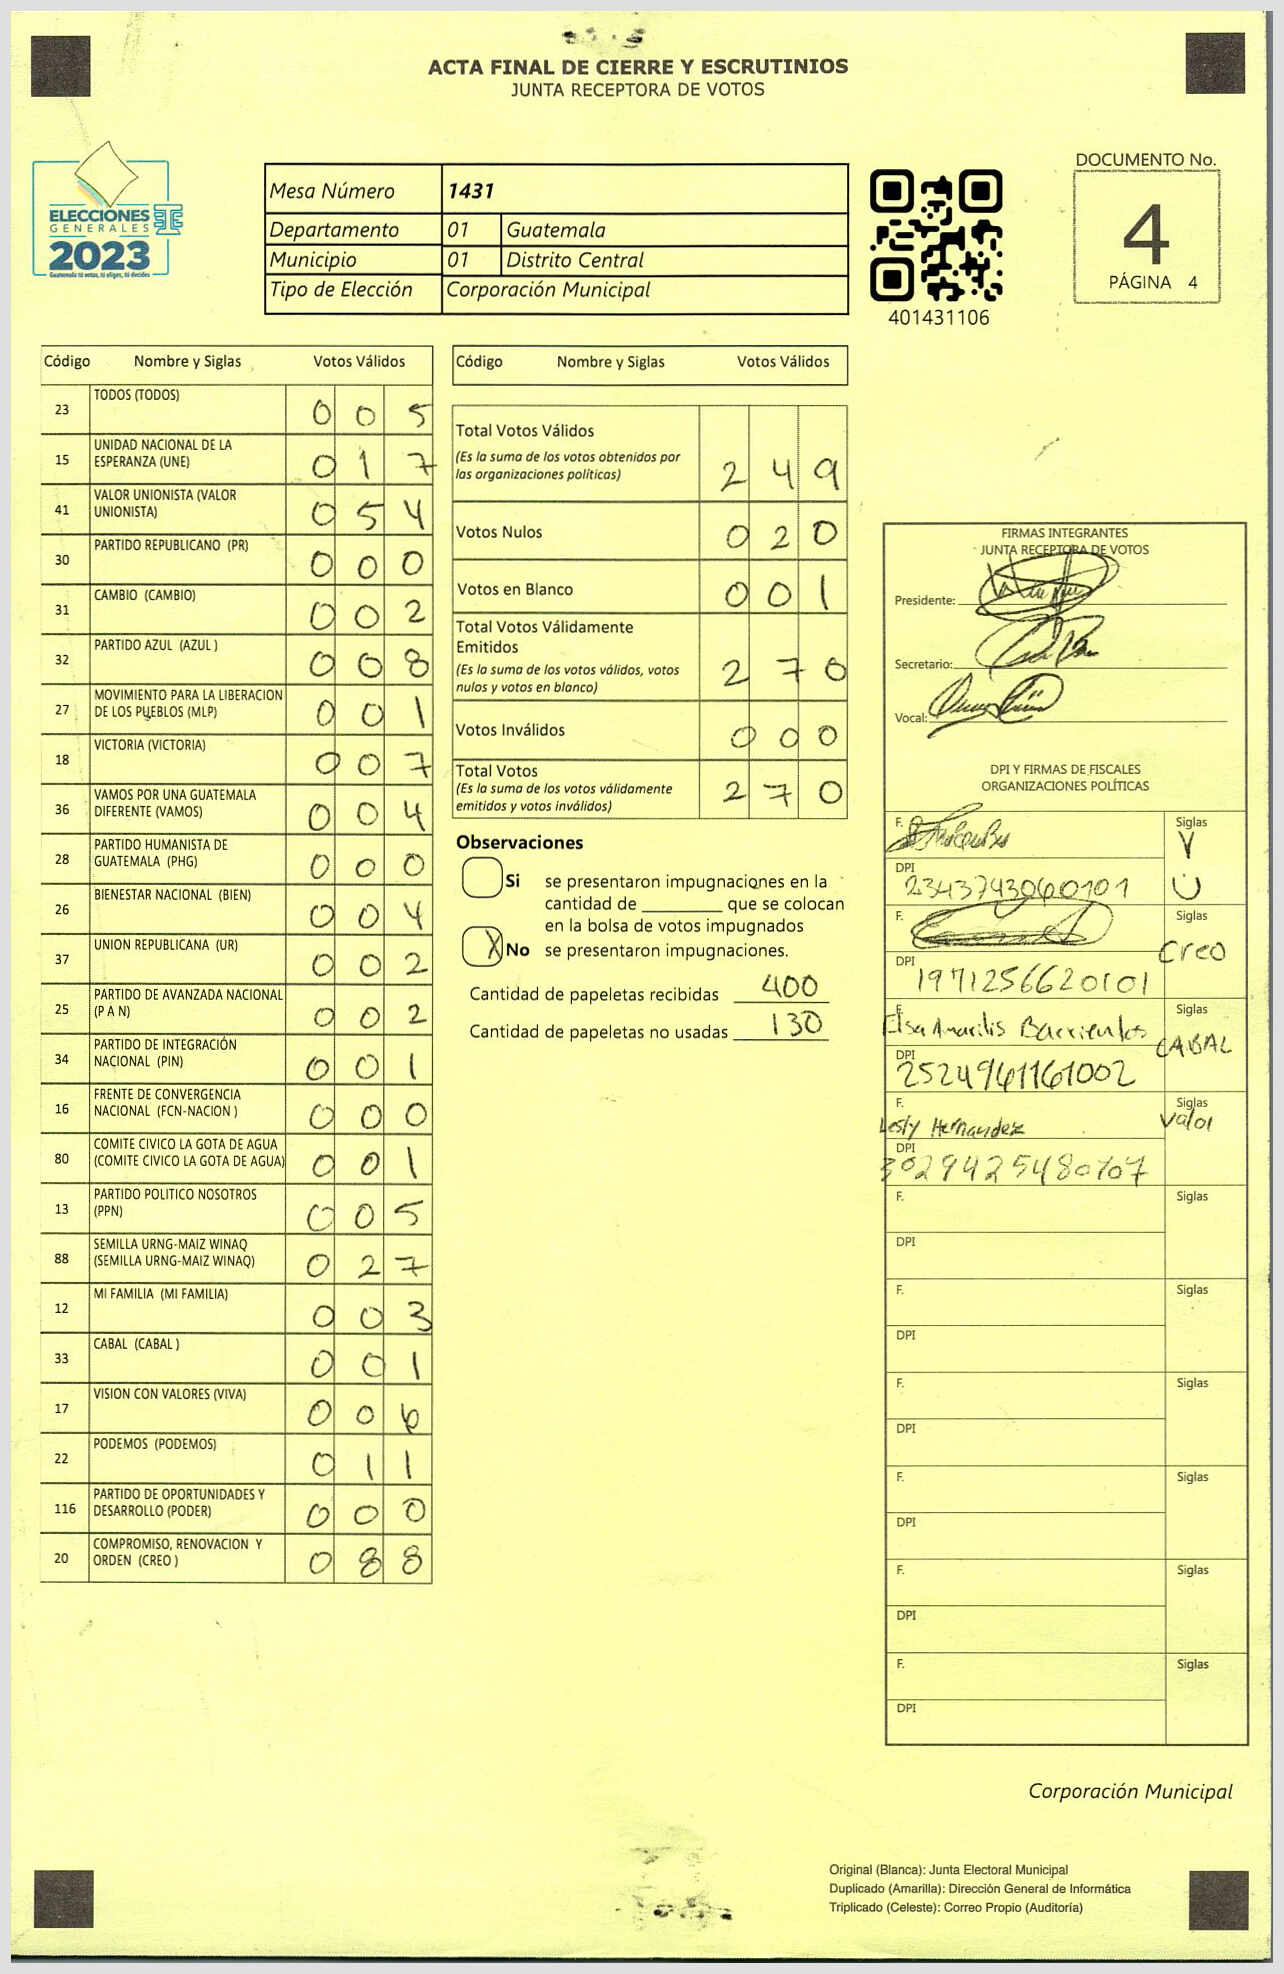 ACTA FINAL DE CIERRE Y ESCRUTINIOS
JUNTA RECEPTORA DE VOTOS
ELECCIONES
GENERALES
2023
Guatemala tú votas, tú eliges, tú decides
Mesa Número 1431
Departamento 01 Guatemala
Municipio 01 Distrito Central
Tipo de Elección Corporación Municipal
401431106
DOCUMENTO No.
4
PÁGINA 4
Código Nombre y Siglas Votos Válidos
23 TODOS (TODOS) 0 0 5
15 UNIDAD NACIONAL DE LA
ESPERANZA (UNE) 0 1 7
41 VALOR UNIONISTA (VALOR
UNIONISTA) 0 5 4
30 PARTIDO REPUBLICANO (PR) 0 0 0
31 CAMBIO (CAMBIO) 0 0 2
32 PARTIDO AZUL (AZUL ) 0 0 8
27 MOVIMIENTO PARA LA LIBERACION
DE LOS PUEBLOS (MLP) 0 0 1
18 VICTORIA (VICTORIA) 0 0 7
36 VAMOS POR UNA GUATEMALA
DIFERENTE (VAMOS) 0 0 4
28 PARTIDO HUMANISTA DE
GUATEMALA (PHG) 0 0 0
26 BIENESTAR NACIONAL (BIEN) 0 0 4
37 UNION REPUBLICANA (UR) 0 0 2
25 PARTIDO DE AVANZADA NACIONAL
(P A N) 0 0 2
34 PARTIDO DE INTEGRACIÓN
NACIONAL (PIN) 0 0 1
16 FRENTE DE CONVERGENCIA
NACIONAL (FCN-NACION ) 0 0 0
80 COMITE CIVICO LA GOTA DE AGUA
(COMITE CIVICO LA GOTA DE AGUA) 0 0 1
13 PARTIDO POLITICO NOSOTROS
(PPN) 0 0 5
88 SEMILLA URNG-MAIZ WINAQ
(SEMILLA URNG-MAIZ WINAQ) 0 2 7
12 MI FAMILIA (MI FAMILIA) 0 0 3
33 CABAL (CABAL ) 0 0 1
17 VISION CON VALORES (VIVA) 0 0 6
22 PODEMOS (PODEMOS) 0 1 1
116 PARTIDO DE OPORTUNIDADES Y
DESARROLLO (PODER) 0 0 0
20 COMPROMISO, RENOVACION Y
ORDEN (CREO ) 0 8 8
Código Nombre y Siglas Votos Válidos
Total Votos Válidos
(Es la suma de los votos obtenidos por
las organizaciones políticas) 2 4 9
Votos Nulos 0 2 0
Votos en Blanco 0 0 1
Total Votos Válidamente
Emitidos
(Es la suma de los votos válidos, votos
nulos y votos en blanco) 2 7 0
Votos Inválidos 0 0 0
Total Votos
(Es la suma de los votos válidamente
emitidos y votos inválidos) 2 7 0
Observaciones
Si se presentaron impugnaciones en la
cantidad de ________ que se colocan
en la bolsa de votos impugnados
X No se presentaron impugnaciones.
Cantidad de papeletas recibidas 400
Cantidad de papeletas no usadas 130
FIRMAS INTEGRANTES
JUNTA RECEPTORA DE VOTOS
Presidente:
Secretario:
Vocal:
DPI Y FIRMAS DE FISCALES
ORGANIZACIONES POLÍTICAS
F. Siglas
V
DPI
2343743060101 U
F. Siglas
Creo
DPI
1971256620101
F. Siglas
Elsa Amarilis Barrientos CABAL
DPI
2524961161002
F. Siglas
Lesly Hernandez Valor
DPI
3029425480707
F. Siglas
DPI
F. Siglas
DPI
F. Siglas
DPI
F. Siglas
DPI
F. Siglas
DPI
F. Siglas
DPI
Corporación Municipal
Original (Blanca): Junta Electoral Municipal
Duplicado (Amarilla): Dirección General de Informática
Triplicado (Celeste): Correo Propio (Auditoría)